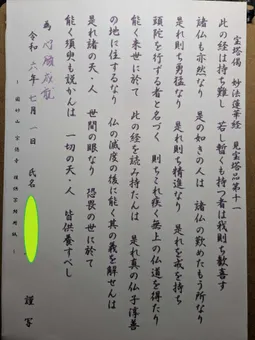 宝塔偈 妙法蓮華経 見宝塔品第十一
此の経は持ち難し 若し暫くも持つ者は我則ち歓喜す
諸仏も亦然なり 是の如きの人は 諸仏の歎めたもう所なり
是れ則ち勇猛なり 是れ則ち精進なり 是れを戒を持ち
頭陀を行ずる者と名づく 則ちこれ疾く無上の仏道を得たり
能く来世に於て 此の経を読み持たんは 是れ真の仏子淳善
の地に住するなり 仏の滅度の後に能く其の義を解せんは
是れ諸の天・人 世間の眼なり 恐畏の世に於て
能く須臾も説かんは 一切の天・人 皆供養すべし
為 心願成就
令和 六年 七月 一日 氏名 謹写